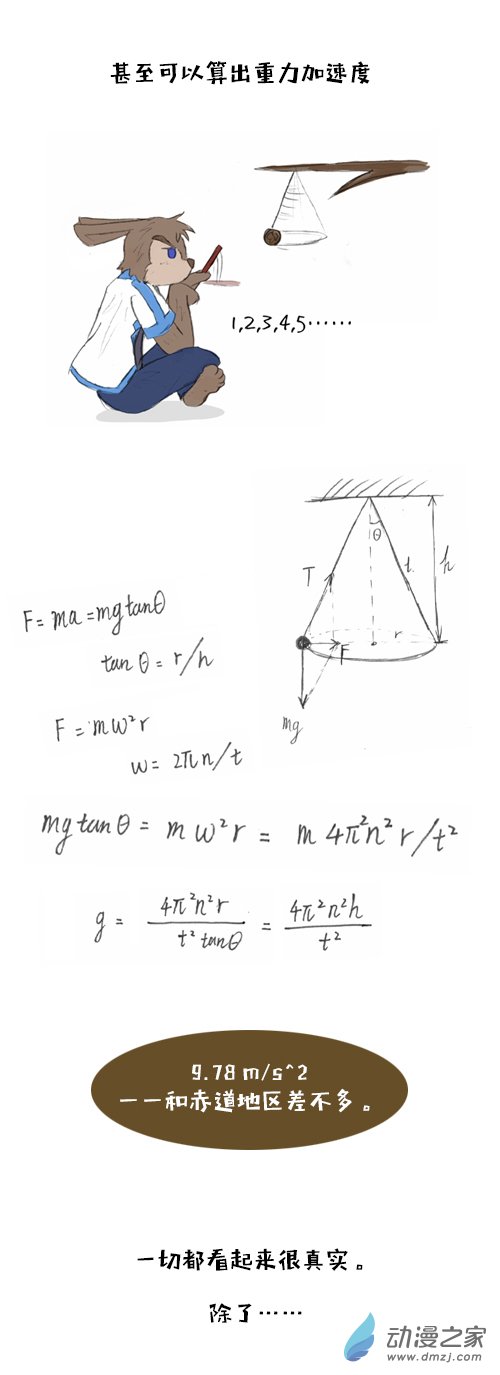 甚至可以算出重力加速度
1,2,3,4,5……
θ
T
l
h
r
F
mg
F = ma = mg tanθ
tan θ = r/h
F = mω²r
ω = 2πn/t
mg tan θ = m ω² r = m 4π²n² r/t²
g = 4π²n²r / t² tanθ = 4π²n²h / t²
9.78 m/s^2
——和赤道地区差不多。
一切都看起来很真实。
除了……
动漫之家
www.dmzj.com